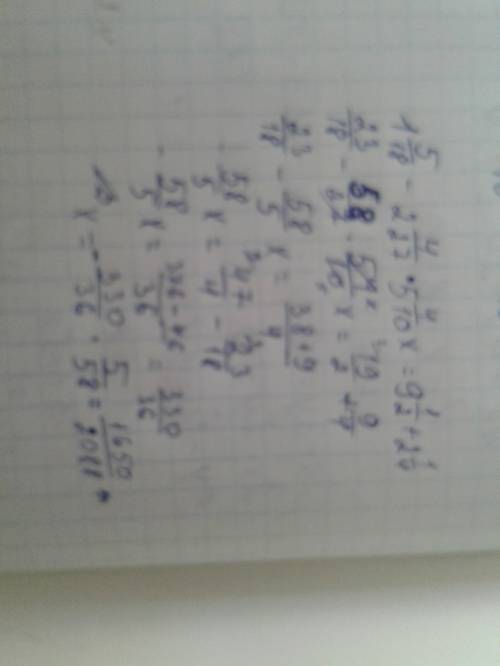 1 5/18 - 2 4/27 · 5 4/10 x = 9 1/2 + 2 1/4
23/18 - 58/27 · 54/10 x = 19/2 + 9/4
23/18 - 58/5 x = 38+9/4
- 58/5 x = 47/4 - 23/18
- 58/5 x = 426-46/36 = 330/36
x = - 330/36 · 5/58 = 1650/2088